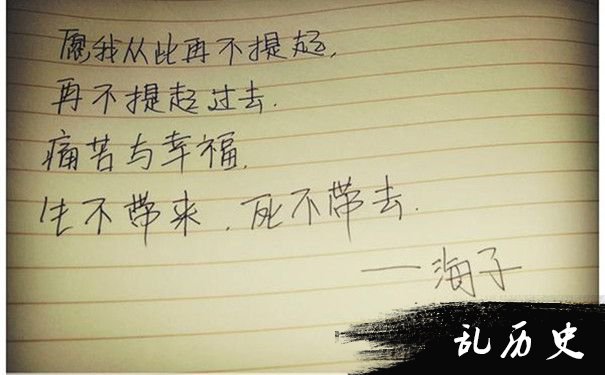 愿我从此再不提起,
再不提起过去.
痛苦与幸福,
生不带来,死不带去.
——海子
乱历史